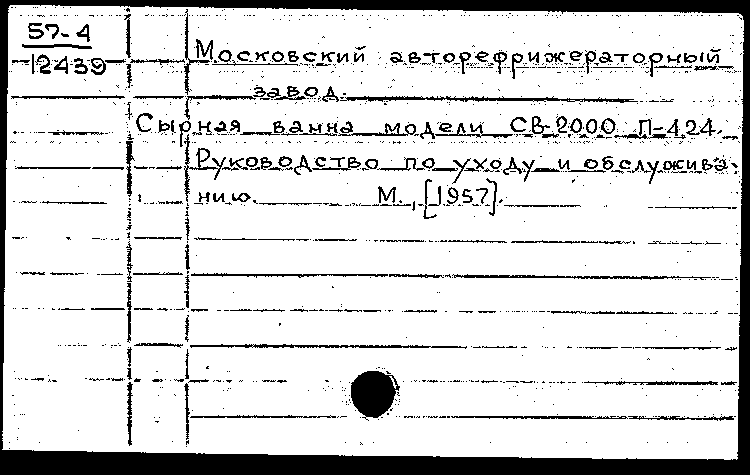 57-4
12439
Московский авторефрижераторный
завод.
Сырная ванна модели СВ-2000 П-424.
Руководство по уходу и обслужива-
нию. М., [1957].